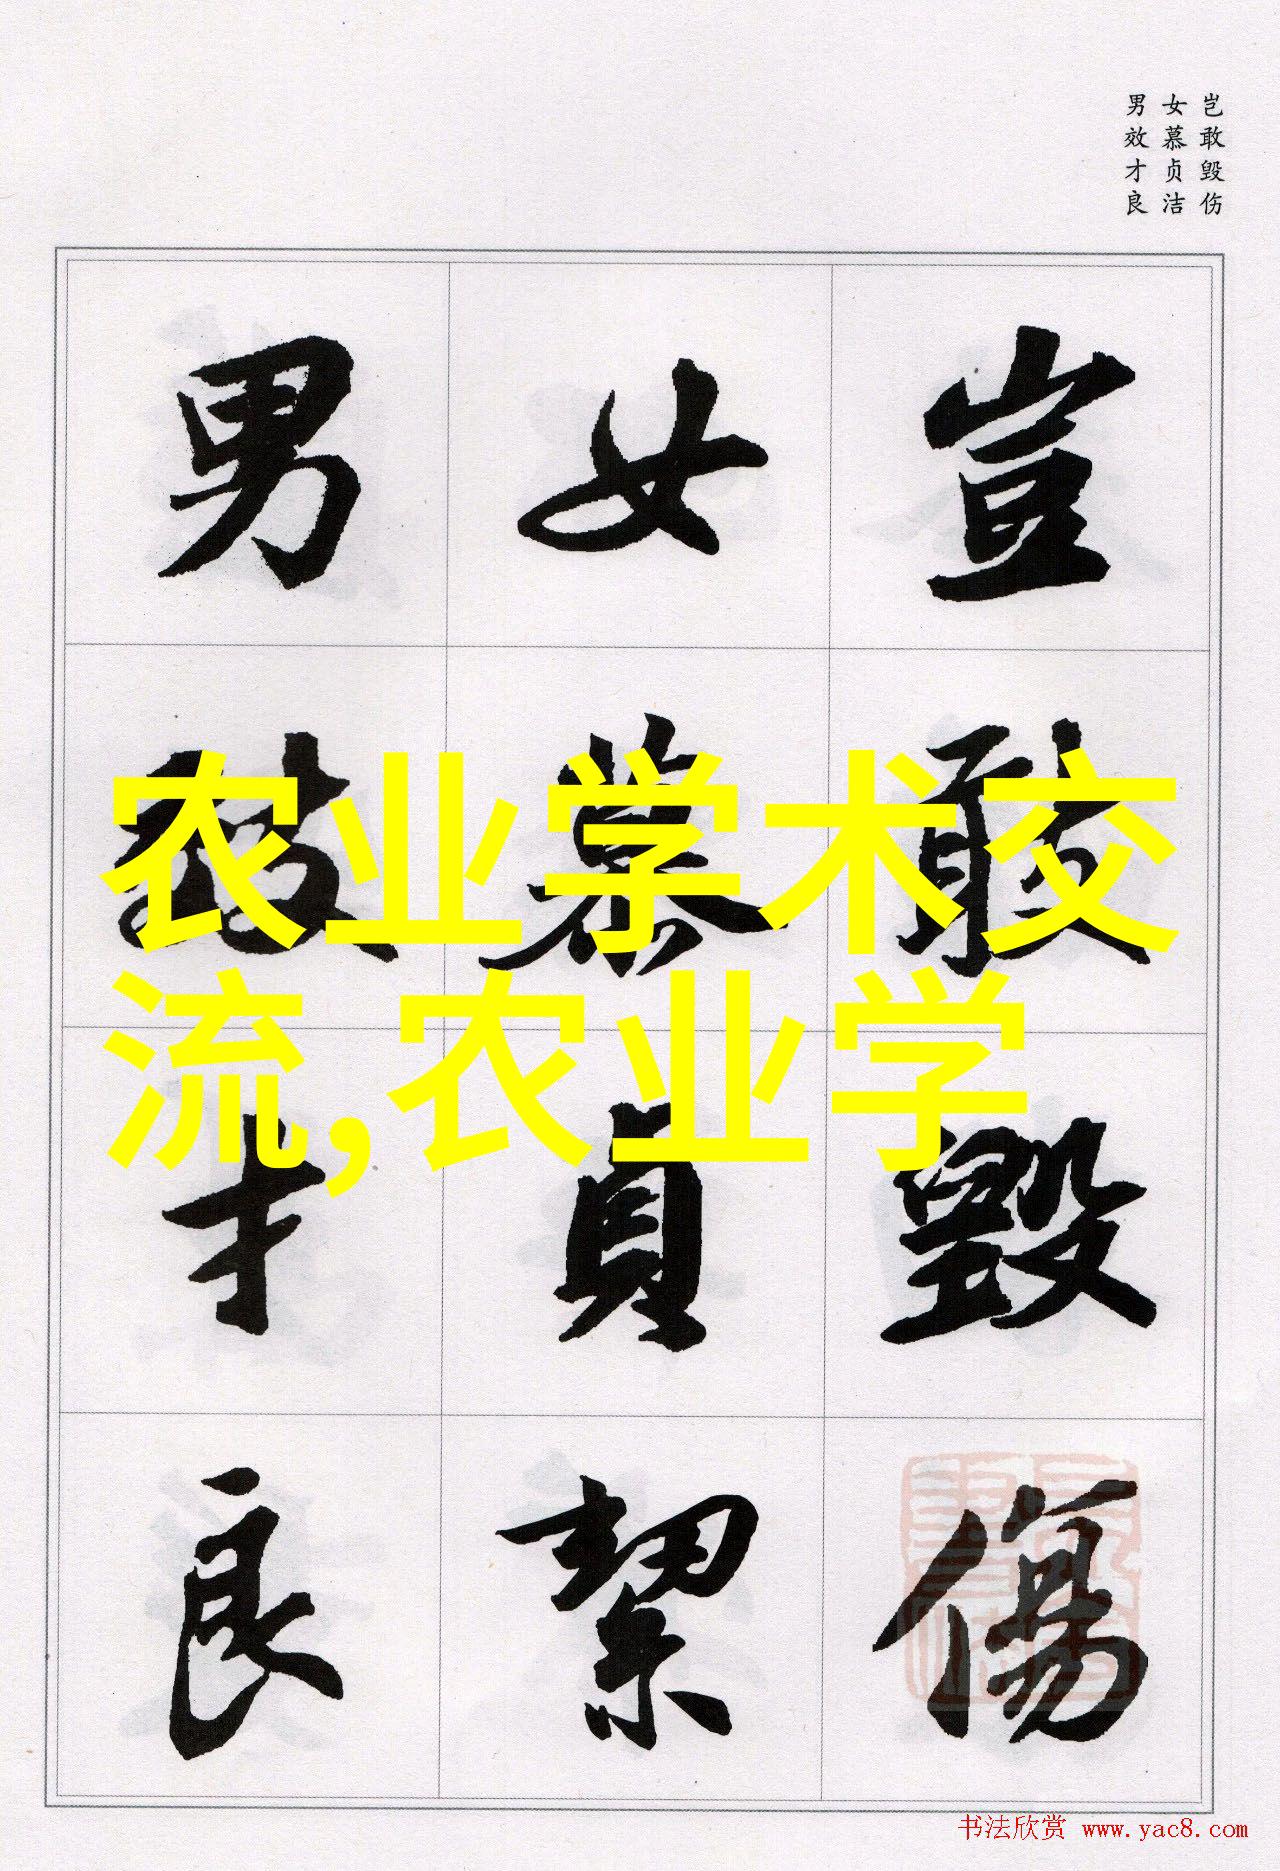 岂敢毁伤
女慕贞洁
男效才良
豈敢毀傷
女慕貞絜
男效才良
农业学术交
流,农业学
书法欣赏 www.yac8.com